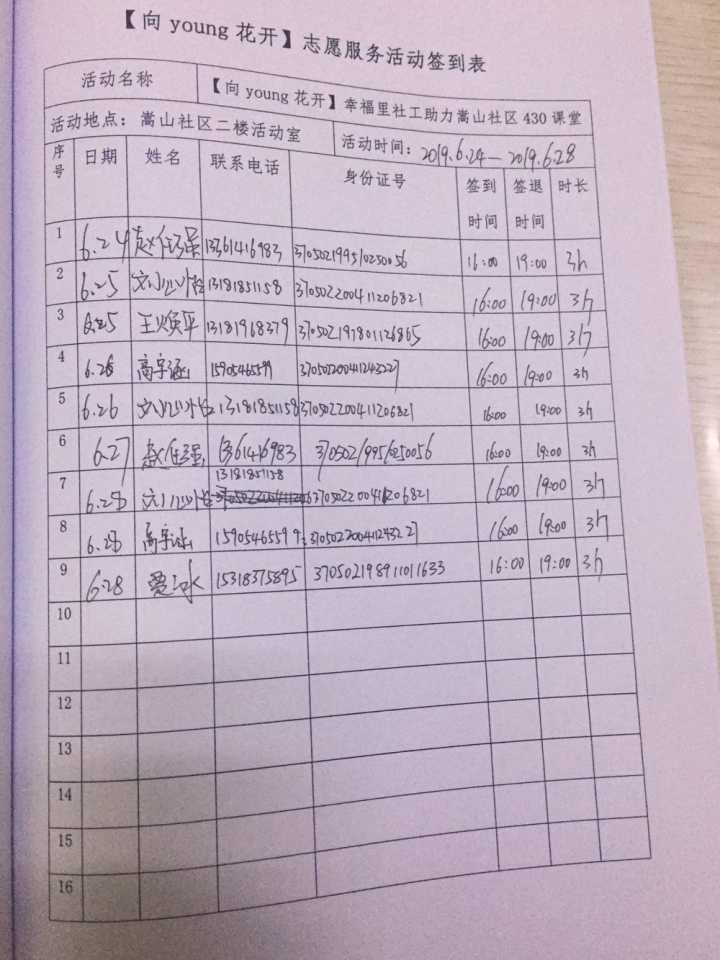 【向 young 花开】志愿服务活动签到表
活动名称 【向 young 花开】幸福里社工助力嵩山社区 430 课堂
活动地点：嵩山社区二楼活动室 活动时间：2019.6.24—2019.6.28
序号 日期 姓名 联系电话 身份证号 签到时间 签退时间 时长
1 6.24 13361416983 370502199510250056 16:00 19:00 3h
2 6.25 13181851158 370502200411206821 16:00 19:00 3h
3 6.25 王焕平 13181968379 370502197801126865 16:00 19:00 3h
4 6.26 高宇涵 15905465599 370502200411243227 16:00 19:00 3h
5 6.26 13181851158 370502200411206821 16:00 19:00 3h
6 6.27 13361416983 370502199510250056 16:00 19:00 3h
7 6.28 13181851158 370502200411206821 16:00 19:00 3h
8 6.28 高宇涵 15905465599 370502200411243227 16:00 19:00 3h
9 6.28 15318375895 370502198911011633 16:00 19:00 3h
10
11
12
13
14
15
16